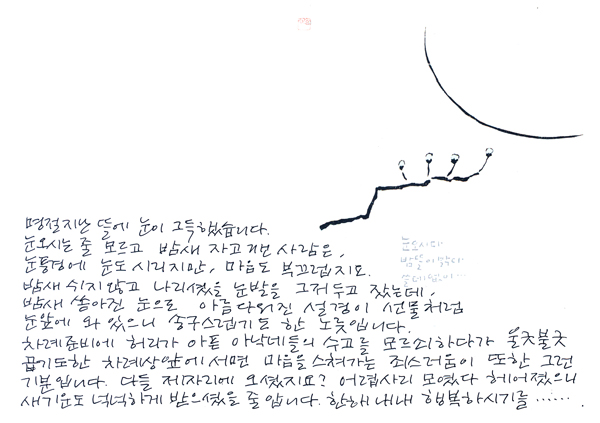 눈오시데
밤눈이 왔데
쓸데없이…
명절지난 뜰에 눈이 그득했습니다.
눈오시는 줄 모르고 밤새 자고 깬 사람은,
눈풍경에 눈도 시리지만, 마음도 부끄럽지요.
밤새 쉬지않고 나리셨을 눈발을 그저두고 잤는데,
밤새 쏟아진 눈으로 아름다워진 설경이 선물처럼
눈앞에 와 있으니 송구스럽기도 한 노릇입니다.
차례준비에 허리가 아픈 아낙네들의 수고를 모르쇠하다가 울긋불긋
곱기도한 차례상앞에서면 마음을 스쳐가는 죄스러움이 또한 그런
기분입니다. 다들 제자리에 오셨지요? 어렵사리 모였다 헤어졌으니
새기운도 넉넉하게 받으셨을 줄 압니다. 한해내내 행복하시기를……